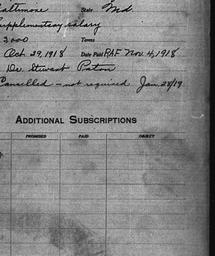 Baltimore State Md.
Supplementary salary
3000 Terms
Oct 29, 1918 Date Paid RAF Nov. 4, 1918
Dr. Stewart Paton
Cancelled - not required Jan 28/19
ADDITIONAL SUBSCRIPTIONS
PROMISED PAID OBJECT